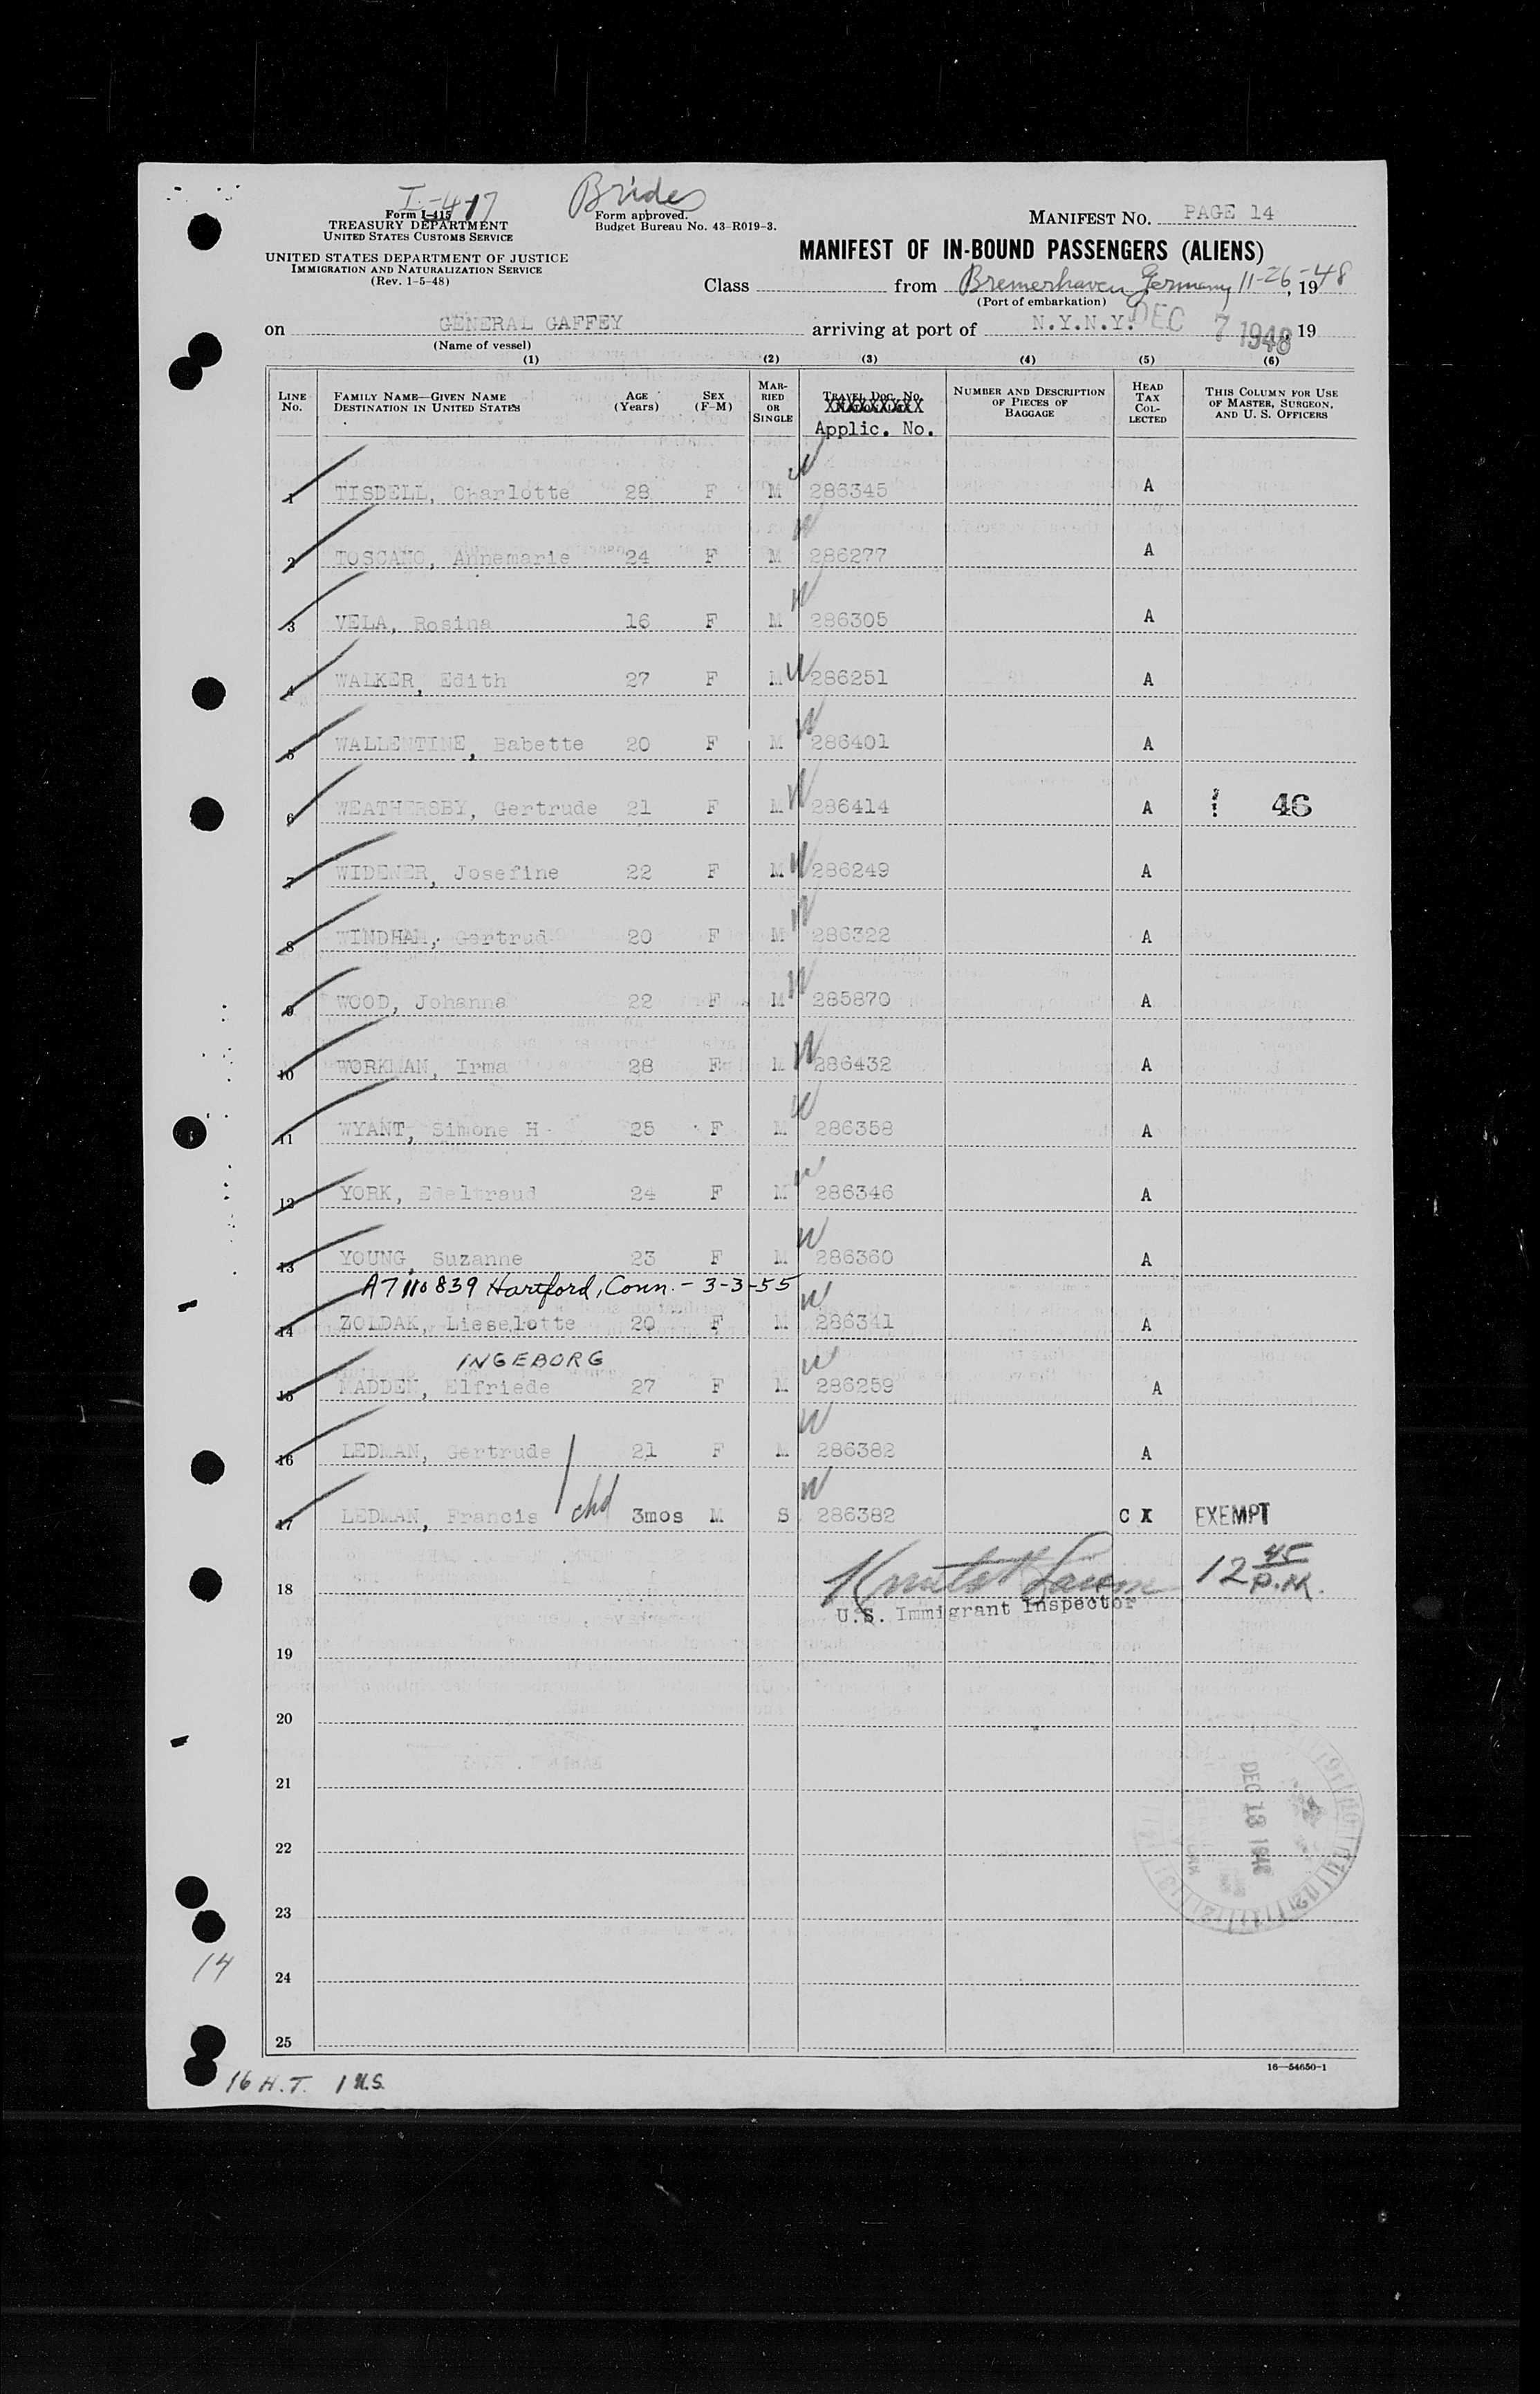 I-417
Brides
Form I-415
TREASURY DEPARTMENT
UNITED STATES CUSTOMS SERVICE
UNITED STATES DEPARTMENT OF JUSTICE
IMMIGRATION AND NATURALIZATION SERVICE
(Rev. 1-5-48)
Form approved.
Budget Bureau No. 43-R019-3.
MANIFEST NO. PAGE 14
MANIFEST OF IN-BOUND PASSENGERS (ALIENS)
Class from Bremerhaven, Germany 11-26-, 1948
(Port of embarkation)
on GENERAL GAFFEY arriving at port of N.Y.N.Y. DEC 7 1948 19
(Name of vessel)
(1) (2) (3) (4) (5) (6)
LINE No. FAMILY NAME—GIVEN NAME DESTINATION IN UNITED STATES AGE (Years) SEX (F-M) MARRIED OR SINGLE TRAVEL DOC. NO. Applic. No. NUMBER AND DESCRIPTION OF PIECES OF BAGGAGE HEAD TAX COLLECTED THIS COLUMN FOR USE OF MASTER, SURGEON, AND U. S. OFFICERS
1 TISDELL, Charlotte 28 F M W 286345 A
2 TOSCANO, Annemarie 24 F M W 286277 A
3 VELA, Rosina 16 F M W 286305 A
4 WALKER, Edith 27 F M W 286251 A
5 WALLENTINE, Babette 20 F M W 286401 A
6 WEATHERSBY, Gertrude 21 F M W 286414 A 46
7 WIDENER, Josefine 22 F M W 286249 A
8 WINDHAM, Gertrud 20 F M W 286322 A
9 WOOD, Johanna 22 F M W 285870 A
10 WORKMAN, Irma 28 F M W 286432 A
11 WYANT, Simone H 25 F M W 286358 A
12 YORK, Edeltraud 24 F M W 286346 A
13 YOUNG, Suzanne 23 F M W 286360 A
A7110839 Hartford, Conn. - 3-3-55
14 ZOLDAK, Lieselotte 20 F M W 286341 A
INGEBORG
15 MADDEN, Elfriede 27 F M W 286259 A
16 LEDMAN, Gertrude 21 F M W 286382 A
17 LEDMAN, Francis chd 3mos M S W 286382 C X EXEMPT
18 12 45 P.M.
U.S. Immigrant Inspector
19
20
21
22
23
24
25
DEC 13 1948
14
16—54650-1
16 H.T. 1 U.S.